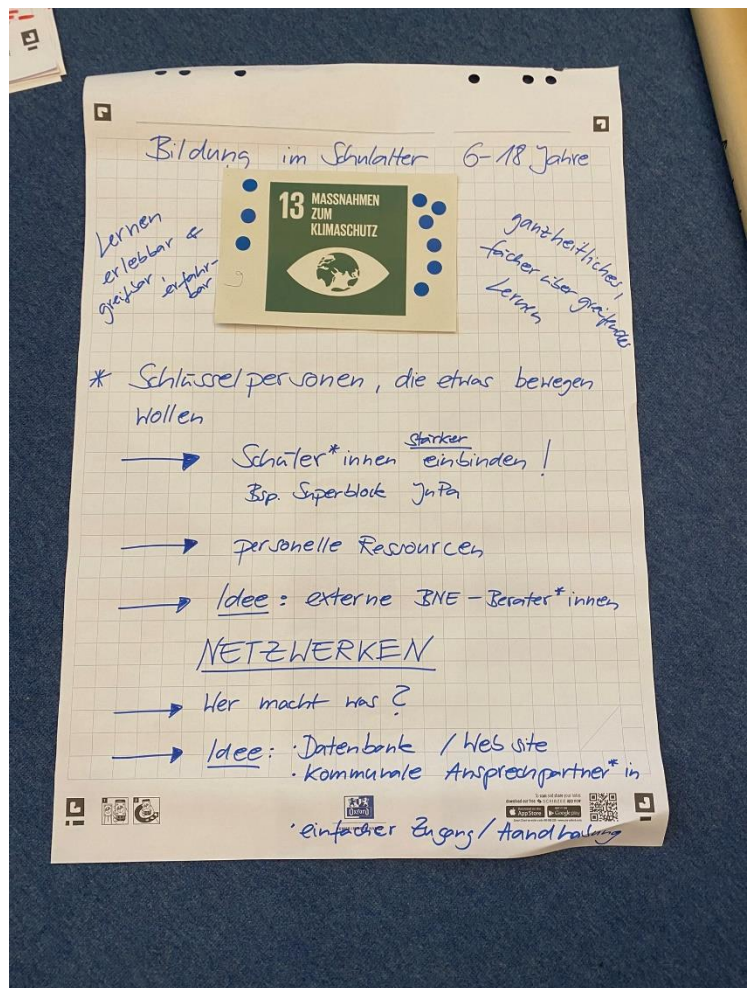 Bildung im Schulalter 6-18 Jahre
13 MASSNAHMEN
ZUM
KLIMASCHUTZ
Lernen
erlebbar &
greifbar, erfahr-
bar
ganzheitliches,
fächerübergreifendes
Lernen
* Schlüsselpersonen, die etwas bewegen
wollen
→ Schüler*innen stärker einbinden!
Bsp. Superblock JuPa
→ personelle Ressourcen
→ Idee: externe BNE-Berater*innen
NETZWERKEN
→ Wer macht was?
→ Idee: · Datenbank / Website
· kommunale Ansprechpartner*in
Oxford
App Store Google play
· einfacher Zugang / Handhabung